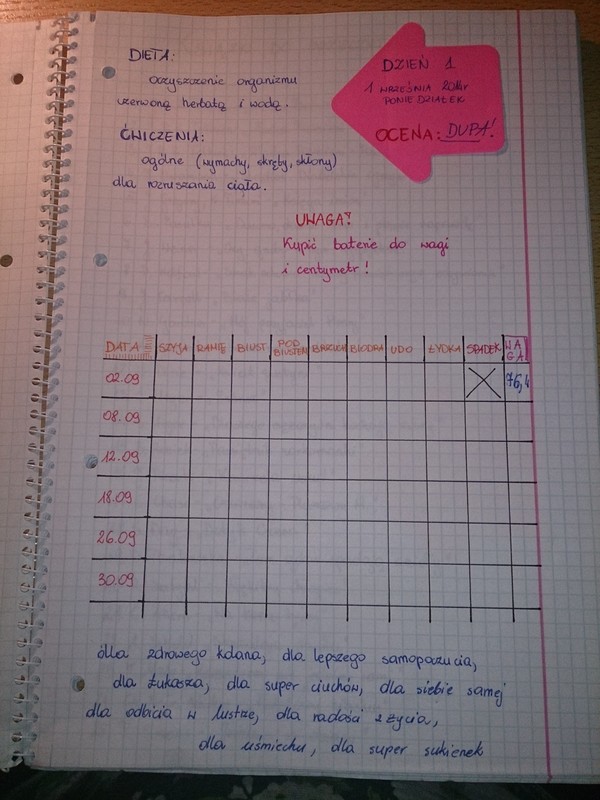 DIETA:
oczyszczanie organizmu
czerwoną herbatą i wodą.
ĆWICZENIA:
ogólne (wymachy, skręty, skłony)
dla rozruszania ciała.
DZIEŃ 1
1 WRZEŚNIA 2014r
PONIEDZIAŁEK
OCENA: DUPA!
UWAGA!
Kupić baterie do wagi
i centymetr!
DATA SZYJA RAMIĘ BIUST POD BIUSTEM BRZUCH BIODRA UDO ŁYDKA SPADEK WAGA
02.09 76,4
08.09
12.09
18.09
26.09
30.09
dla zdrowego kolana, dla lepszego samopoczucia,
dla Łukasza, dla super ciuchów, dla siebie samej
dla odbicia w lustrze, dla radości z życia,
dla uśmiechu, dla super sukienek